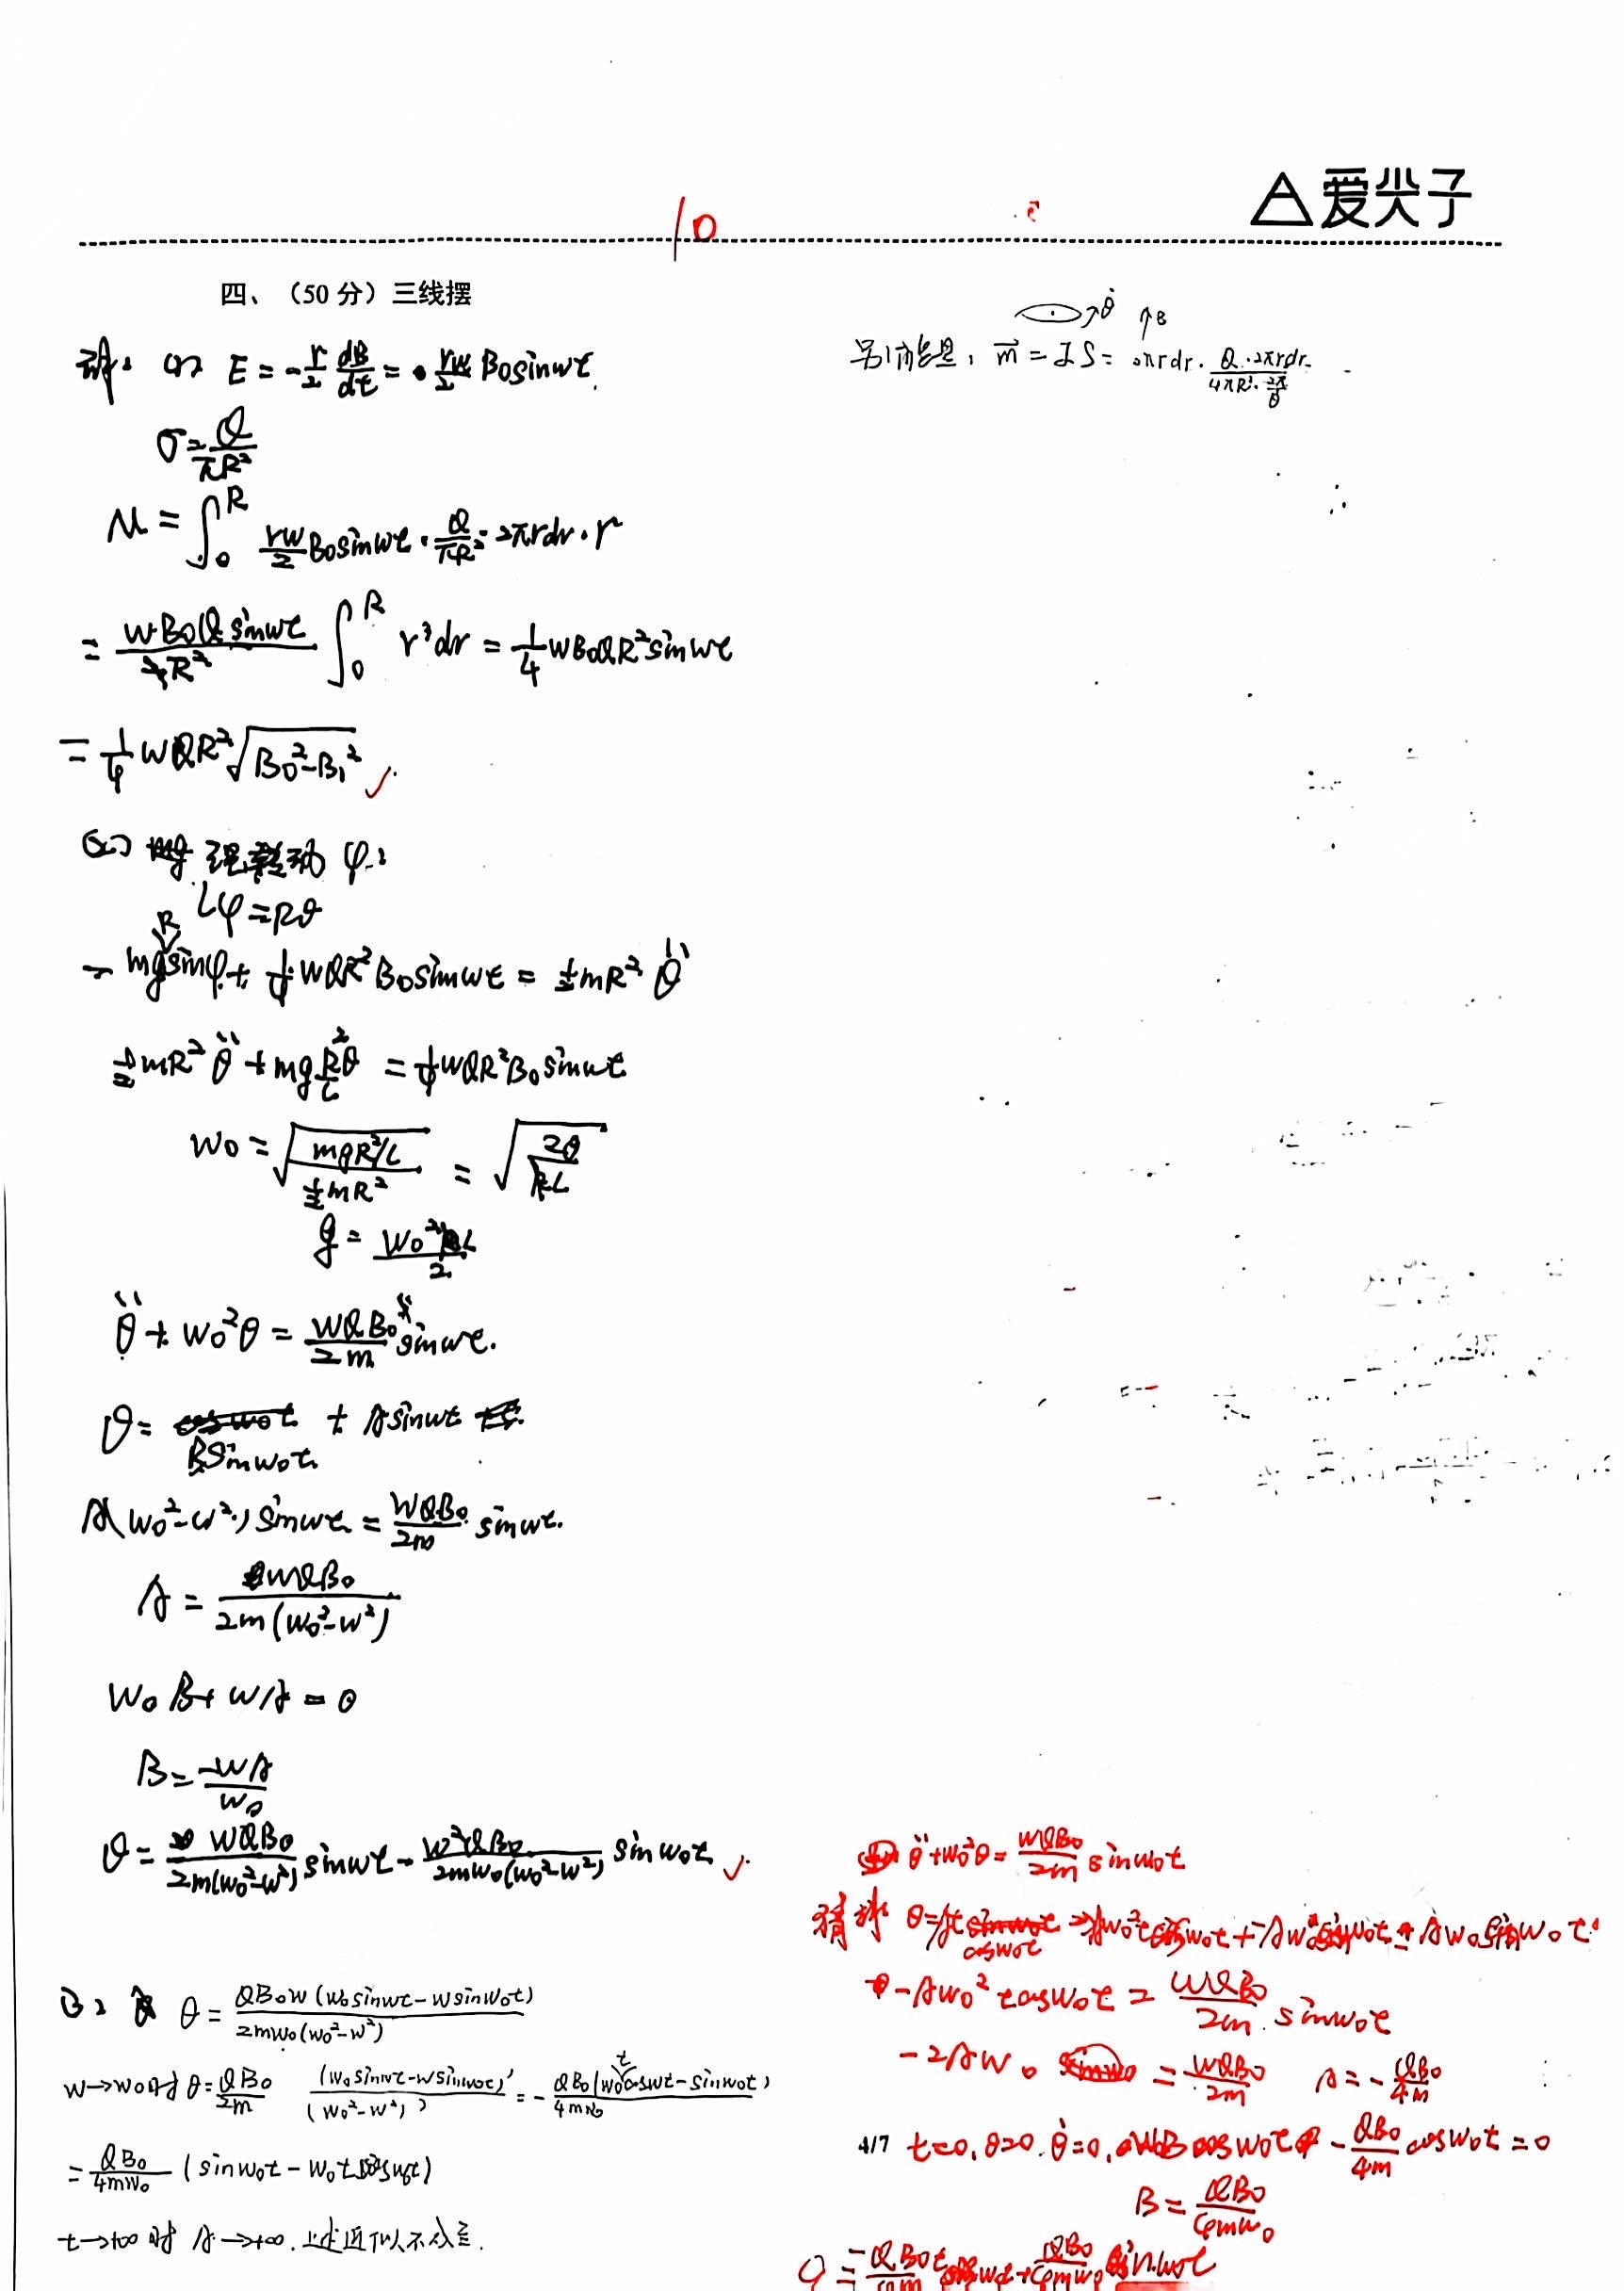 爱尖子
10
四、（50 分）三线摆
解: (1) E = -\frac{r}{2} \frac{dB}{dt} = \frac{rω}{2} B₀sinωt.
σ = \frac{Q}{πR²}
M = ∫₀^R \frac{rω}{2} B₀sinωt · \frac{Q}{πR²} · 2πrdr · r
= \frac{ωB₀Qsinωt}{R²} ∫₀^R r³dr = \frac{1}{4}ωB₀QR²sinωt
= \frac{1}{4}ωQR²\sqrt{B₀²-B₁²} ✓
(2) 转动 φ:
Lφ = Rθ
- mgRsinφ + \frac{1}{4}ωQR²B₀sinωt = \frac{1}{2}mR² θ̈
\frac{1}{2}mR² θ̈ + mg\frac{R²θ}{L} = \frac{1}{4}ωQR²B₀sinωt
ω₀ = \sqrt{\frac{mgR²/L}{\frac{1}{2}mR²}} = \sqrt{\frac{2g}{L}}
g = \frac{ω₀²L}{2}
θ̈ + ω₀²θ = \frac{ωQB₀}{2m} sinωt.
θ = Bsinω₀t + Asinωt
A(ω₀²-ω²)sinωt = \frac{ωQB₀}{2m} sinωt.
A = \frac{ωQB₀}{2m(ω₀²-ω²)}
ω₀B + ωA = 0
B = \frac{-ωA}{ω₀}
θ = \frac{ωQB₀}{2m(ω₀²-ω²)} sinωt - \frac{ω²QB₀}{2mω₀(ω₀²-ω²)} sinω₀t ✓
(3) θ = \frac{QB₀ω(ω₀sinωt-ωsinω₀t)}{2mω₀(ω₀²-ω²)}
ω→ω₀时 θ = \frac{QB₀}{2m} \frac{(ω₀sinωt-ωsinω₀t)'}{(ω₀²-ω²)'} = -\frac{QB₀(ω₀tcosωt-sinω₀t)}{4mω₀}
= \frac{QB₀}{4mω₀} (sinω₀t - ω₀tcosω₀t)
t→+∞时 A→+∞. 上述近似不合适.
θ̇ ↑B
m⃗ = IS = πrdr · \frac{Q·2πrdr}{4πR²·\frac{2π}{θ̇}}
θ̈ + ω₀²θ = \frac{ωQB₀}{2m} sinω₀t
猜解 θ = At cosω₀t
-Aω₀²tcosω₀t = \frac{ωQB₀}{2m} sinω₀t
-2Aω₀ = \frac{ωQB₀}{2m} A = -\frac{QB₀}{4m}
4/7 t=0, θ=0. θ̇=0, ω₀Bcosω₀t - \frac{QB₀}{4m} cosω₀t = 0
B = \frac{QB₀}{4mω₀}
θ = -\frac{QB₀t}{4m} cosω₀t + \frac{QB₀}{4mω₀} sinω₀t